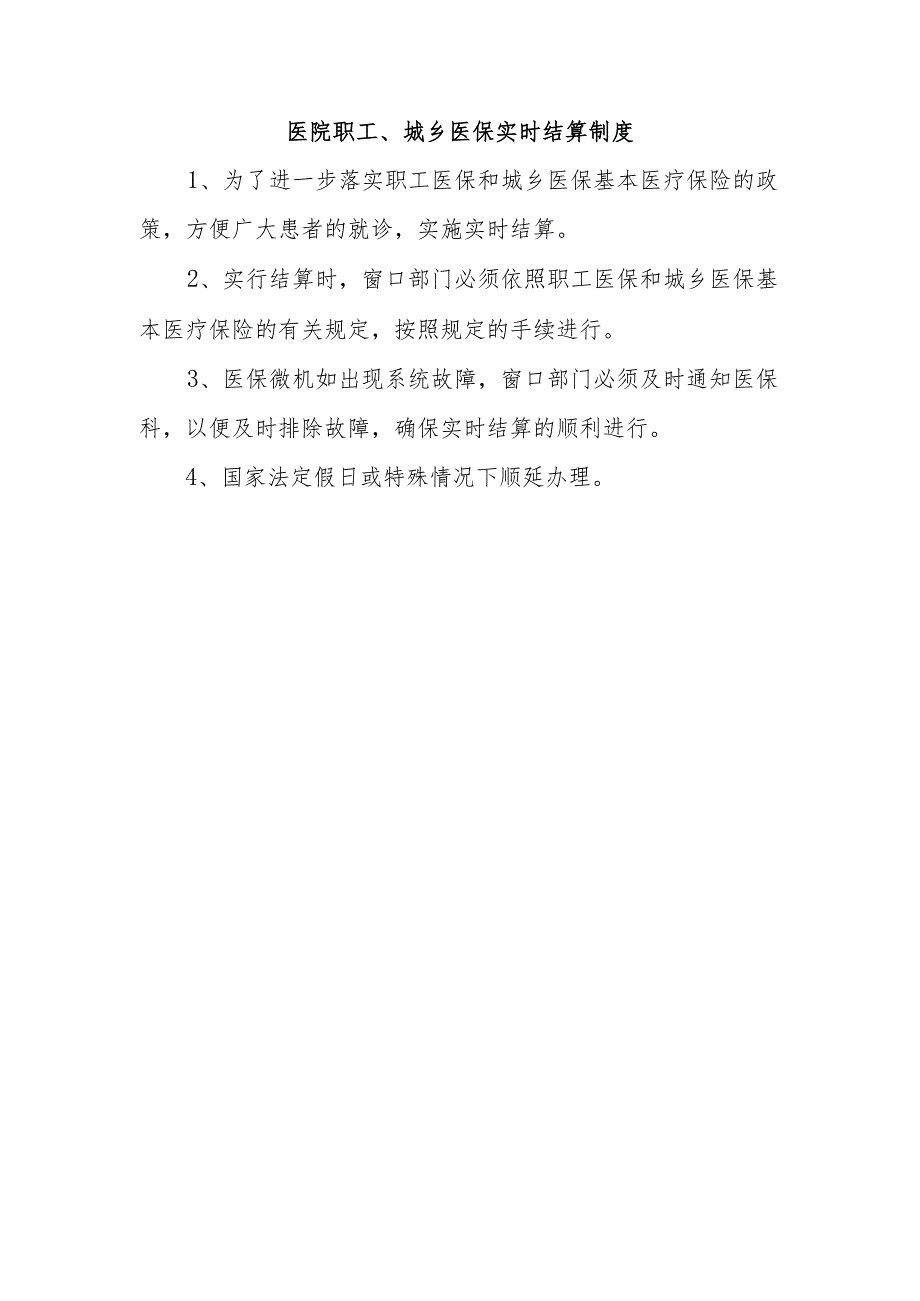 医院职工、城乡医保实时结算制度
1、为了进一步落实职工医保和城乡医保基本医疗保险的政
策，方便广大患者的就诊，实施实时结算。
2、实行结算时，窗口部门必须依照职工医保和城乡医保基
本医疗保险的有关规定，按照规定的手续进行。
3、医保微机如出现系统故障，窗口部门必须及时通知医保
科，以便及时排除故障，确保实时结算的顺利进行。
4、国家法定假日或特殊情况下顺延办理。